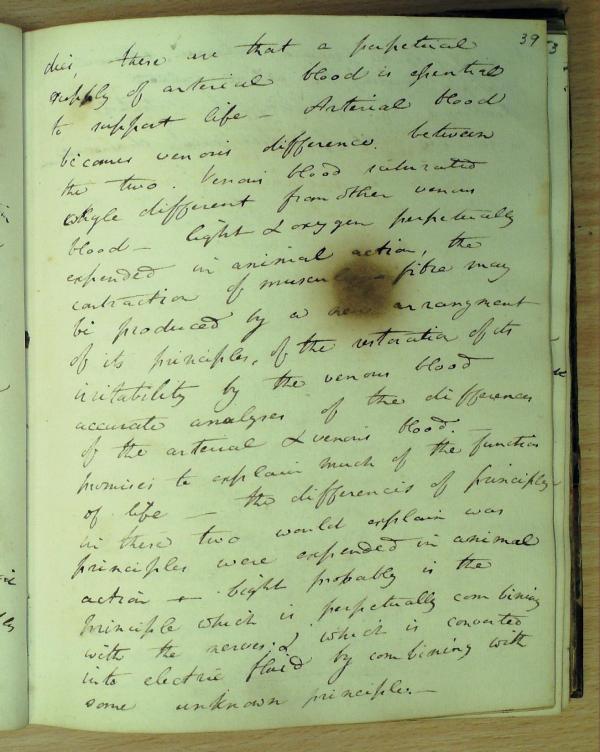 39
dies, these are that a perpetual
supply of arterial blood is essential
to support life - Arterial blood
becomes venous difference between
the two. Venous blood saturated
chyle different from other venous
blood - light & oxygen perpetually
expended in animal action, the
contraction of muscular fibre may
be produced by a new arrangment
of its principles, of the restoration of its
irritability by the venous blood
accurate analyses of the differences
of the arterial & venous blood.
promises to explain much of the function
of life - the differences of principles
in these two would explain was
principles were expended in animal
action - Light probably is the
principle which is perpetually combining
with the nerves. & which is converted
into electric fluid by combining with
some unknown principle. -